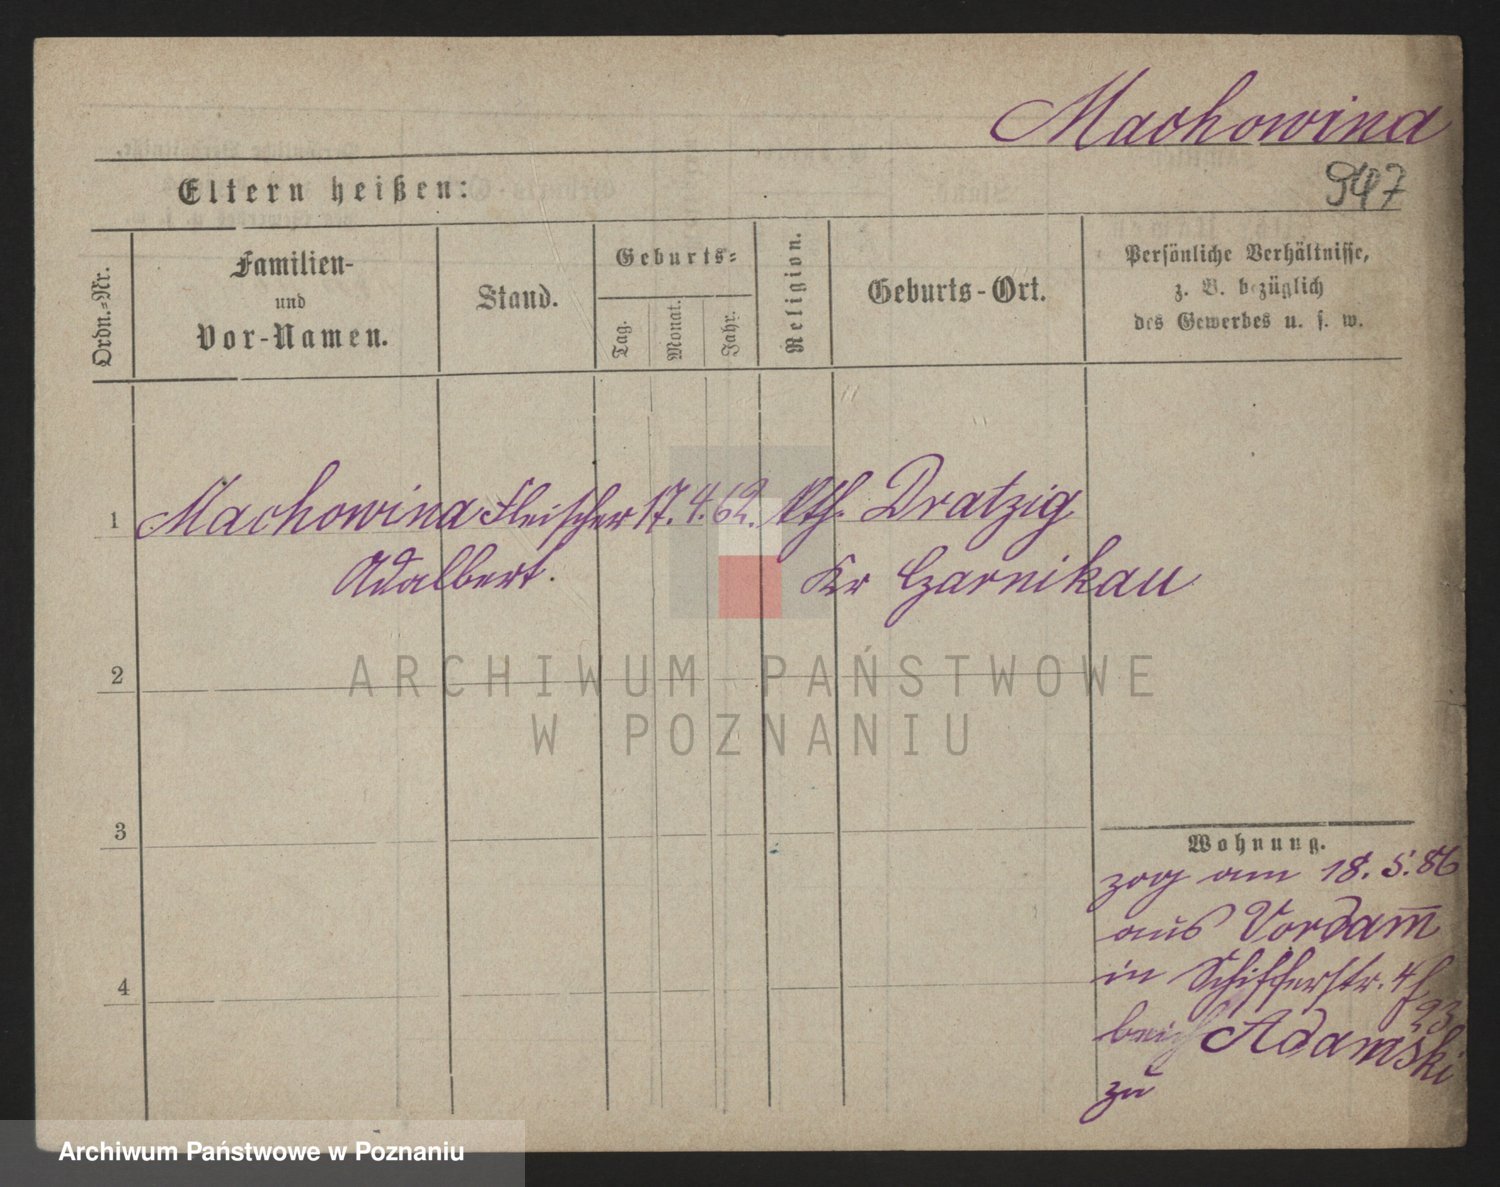 Machowina
947
Eltern heißen:
Ordn.-Nr.
Familien-
und
Vor-Namen.
Stand.
Geburts-
Tag.
Monat.
Jahr.
Religion.
Geburts-Ort.
Persönliche Verhältnisse,
z. B. bezüglich
des Gewerbes u. s. w.
1 Machowina Fleischer 17. 4. 62. Kth. Dratzig
Adalbert. Kr Czarnikau
2
ARCHIWUM PAŃSTWOWE
W POZNANIU
3
Wohnung.
zog am 18. 5. 86
aus Vordam̅
in Schifferstr. 4
23
bei Adamski
zu
4
Archiwum Państwowe w Poznaniu